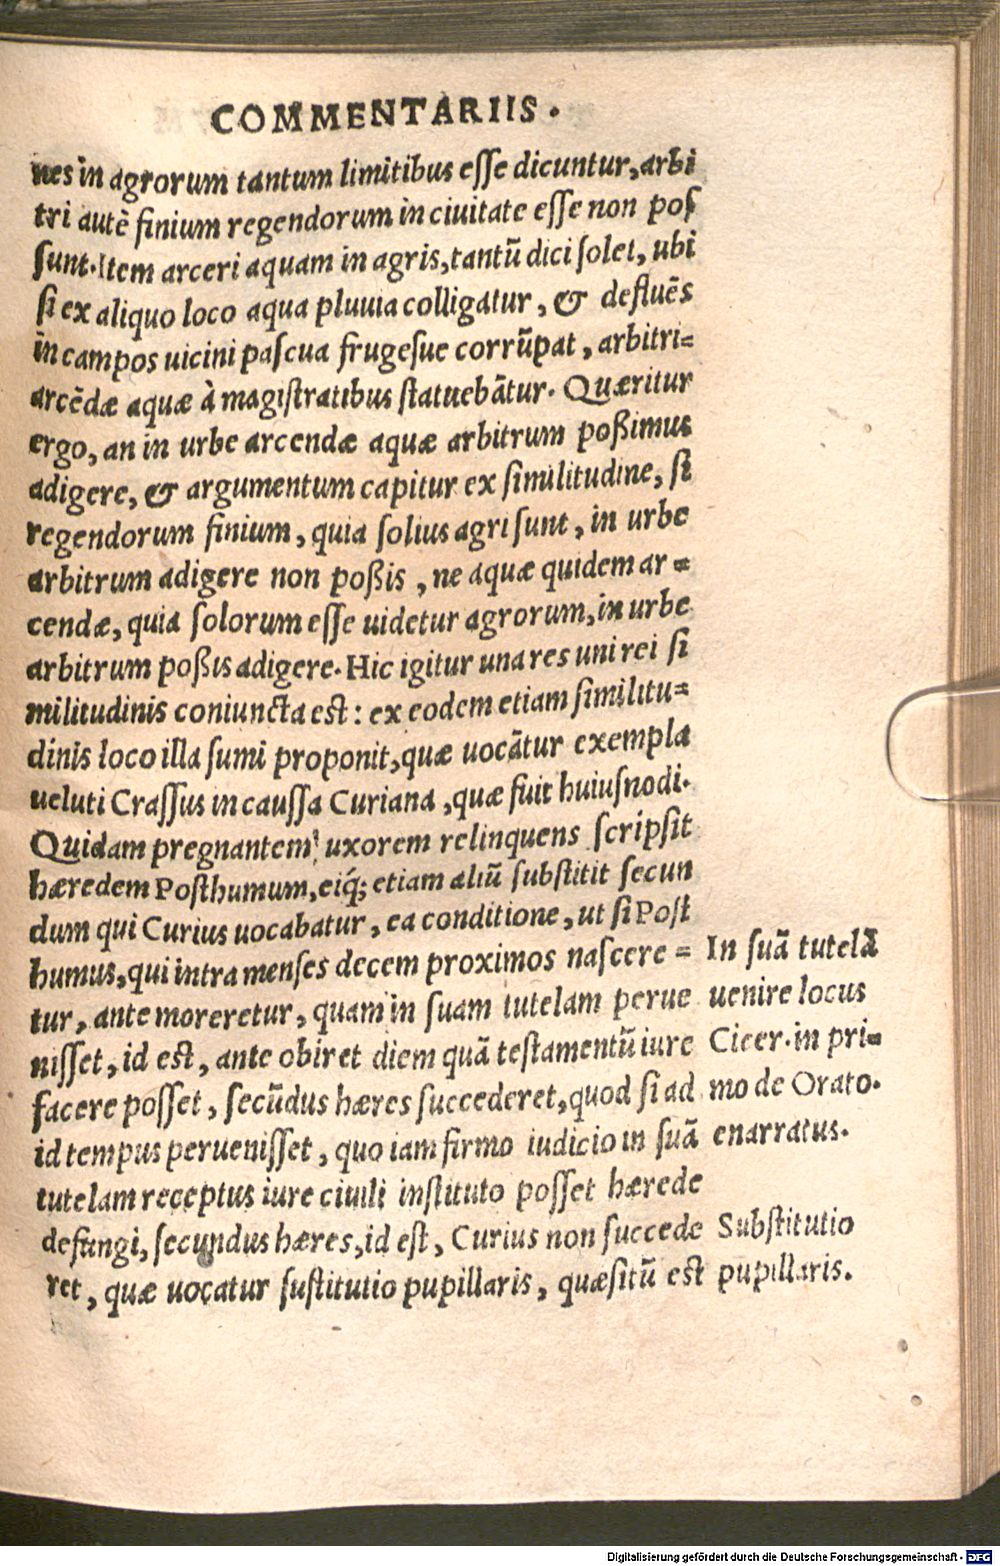 COMMENTARIIS.
nes in agrorum tantum limitibus esse dicuntur, arbi
tri autē finium regendorum in ciuitate esse non pos
sunt. Item arceri aquam in agris, tantū dici solet, ubi
si ex aliquo loco aqua pluuia colligatur, & defluēs
in campos uicini pascua frugesue corrūpat, arbitri-
arcēdæ aquæ à magistratibus statuebātur. Quæritur
ergo, an in urbe arcendæ aquæ arbitrum poßimus
adigere, & argumentum capitur ex similitudine, si
regendorum finium, quia solius agri sunt, in urbe
arbitrum adigere non poßis, ne aquæ quidem ar-
cendæ, quia solorum esse uidetur agrorum, in urbe
arbitrum poßis adigere. Hic igitur una res uni rei si
militudinis coniuncta est: ex eodem etiam similitu-
dinis loco illa sumi proponit, quæ uocātur exempla
ueluti Crassus in caussa Curiana, quæ fuit huiusnodi.
Quidam pregnantem uxorem relinquens scripsit
hæredem Posthumum, eiq́; etiam aliū substitit secun
dum qui Curius uocabatur, ea conditione, ut si Post
humus, qui intra menses decem proximos nascere-
tur, ante moreretur, quam in suam tutelam perue
nisset, id est, ante obiret diem quā testamentū iure
facere posset, secūdus hæres succederet, quod si ad
id tempus peruenisset, quo iam firmo iudicio in suā
tutelam receptus iure ciuili instituto posset hærede
defungi, secundus hæres, id est, Curius non succede
ret, quæ uocatur sustitutio pupillaris, quæsitū est
In suā tutelā
uenire locus
Cicer. in pri-
mo de Orato.
enarratus.
Substitutio
pupillaris.
Digitalisierung gefördert durch die Deutsche Forschungsgemeinschaft - DFG